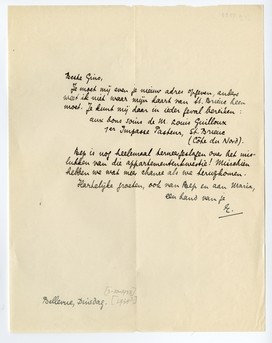 Beste Gino,
Je moet mij even je nieuw adres opgeven, anders
weet ik niet waar mijn kaart van St. Brieuc heen
moet. Je kunt mij daar in ieder geval bereiken:
aux bons soins de M. Louis Guilloux
1er Impasse Pasteur, St. Brieuc
(Côte du Nord).
Bep is nog heelemaal terneergeslagen over het mis-
lukken van die appartementenkwestie! Misschien
hebben we wat meer chance als we terugkomen.
Hartelijke groeten, ook van Bep en aan Maria,
een hand van je
E.
Bellevue, Dinsdag.